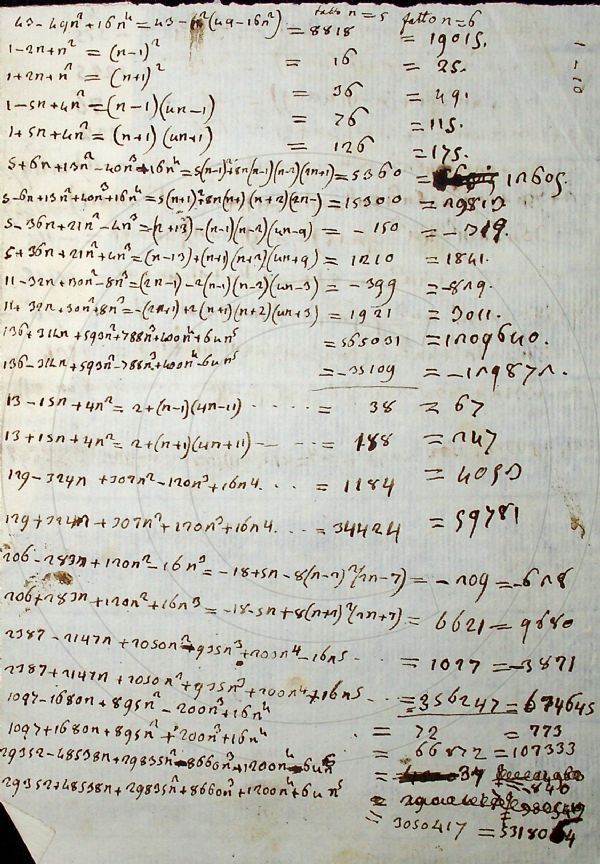 fatto n=5 fatto n=6
43 - 49n² + 16n⁴ = 43 - n²(49-16n²) = 8818 = 19015.
1-2n+n² = (n-1)² = 16 = 25.
1+2n+n² = (n+1)² = 36 = 49.
1-5n+4n² = (n-1)(4n-1) = 76 = 115.
1+5n+4n² = (n+1)(4n+1) = 126 = 175.
5+6n+13n²-40n³+16n⁴ = 5(n-1)²+8n(n-1)(n-2)(2n+1) = 5360 = 12605.
5-6n+13n²+40n³+16n⁴ = 5(n+1)²+8n(n+1)(n+2)(2n-1) = 15300 = 29813
5-36n+21n²-4n³ = -(n+13)-(n-1)(n-2)(4n-9) = -150 = -319.
5+36n+21n²+4n³ = (n-13)+(n+1)(n+2)(4n+9) = 1210 = 1841.
11-32n+30n²-8n³ = (2n-1)-2(n-1)(n-2)(4n-3) = -399 = -829.
11+32n+30n²+8n³ = -(2n+1)+2(n+1)(n+2)(4n+3) = 1921 = 3011.
136+314n+593n²+788n³+400n⁴+64n⁵ = 565031 = 1209640.
136-314n+593n²-788n³+400n⁴-64n⁵ = -35109 = -129872.
13-15n+4n² = 2+(n-1)(4n-11) .... = 38 = 67
13+15n+4n² = 2+(n+1)(4n+11) = 188 = 247
129-324n+307n²-120n³+16n⁴... = 1184 = 4053
129+324n+307n²+120n³+16n⁴ ... = 34424 = 59781
206-283n+120n²-16n³ = -18+5n-8(n-2)²(2n-7) = -209 = -628
206+283n+120n²+16n³ = -18-5n+8(n+2)²(2n+7) = 6621 = 9680
2387-2147n+2050n²-935n³+200n⁴-16n⁵ .. = 1027 = -3871
2387+2147n+2050n²+935n³+200n⁴+16n⁵ .. = 356247 = 674645
1097-1680n+895n²-200n³+16n⁴ . = 72 = 773
1097+1680n+895n²+200n³+16n⁴ = 66872 = 107333
29352-48538n+29835n²-8660n³+1200n⁴-64n⁵ = 37 = -840
29352+48538n+29835n²+8660n³+1200n⁴+64n⁵ =
= 3050417 = 5318064